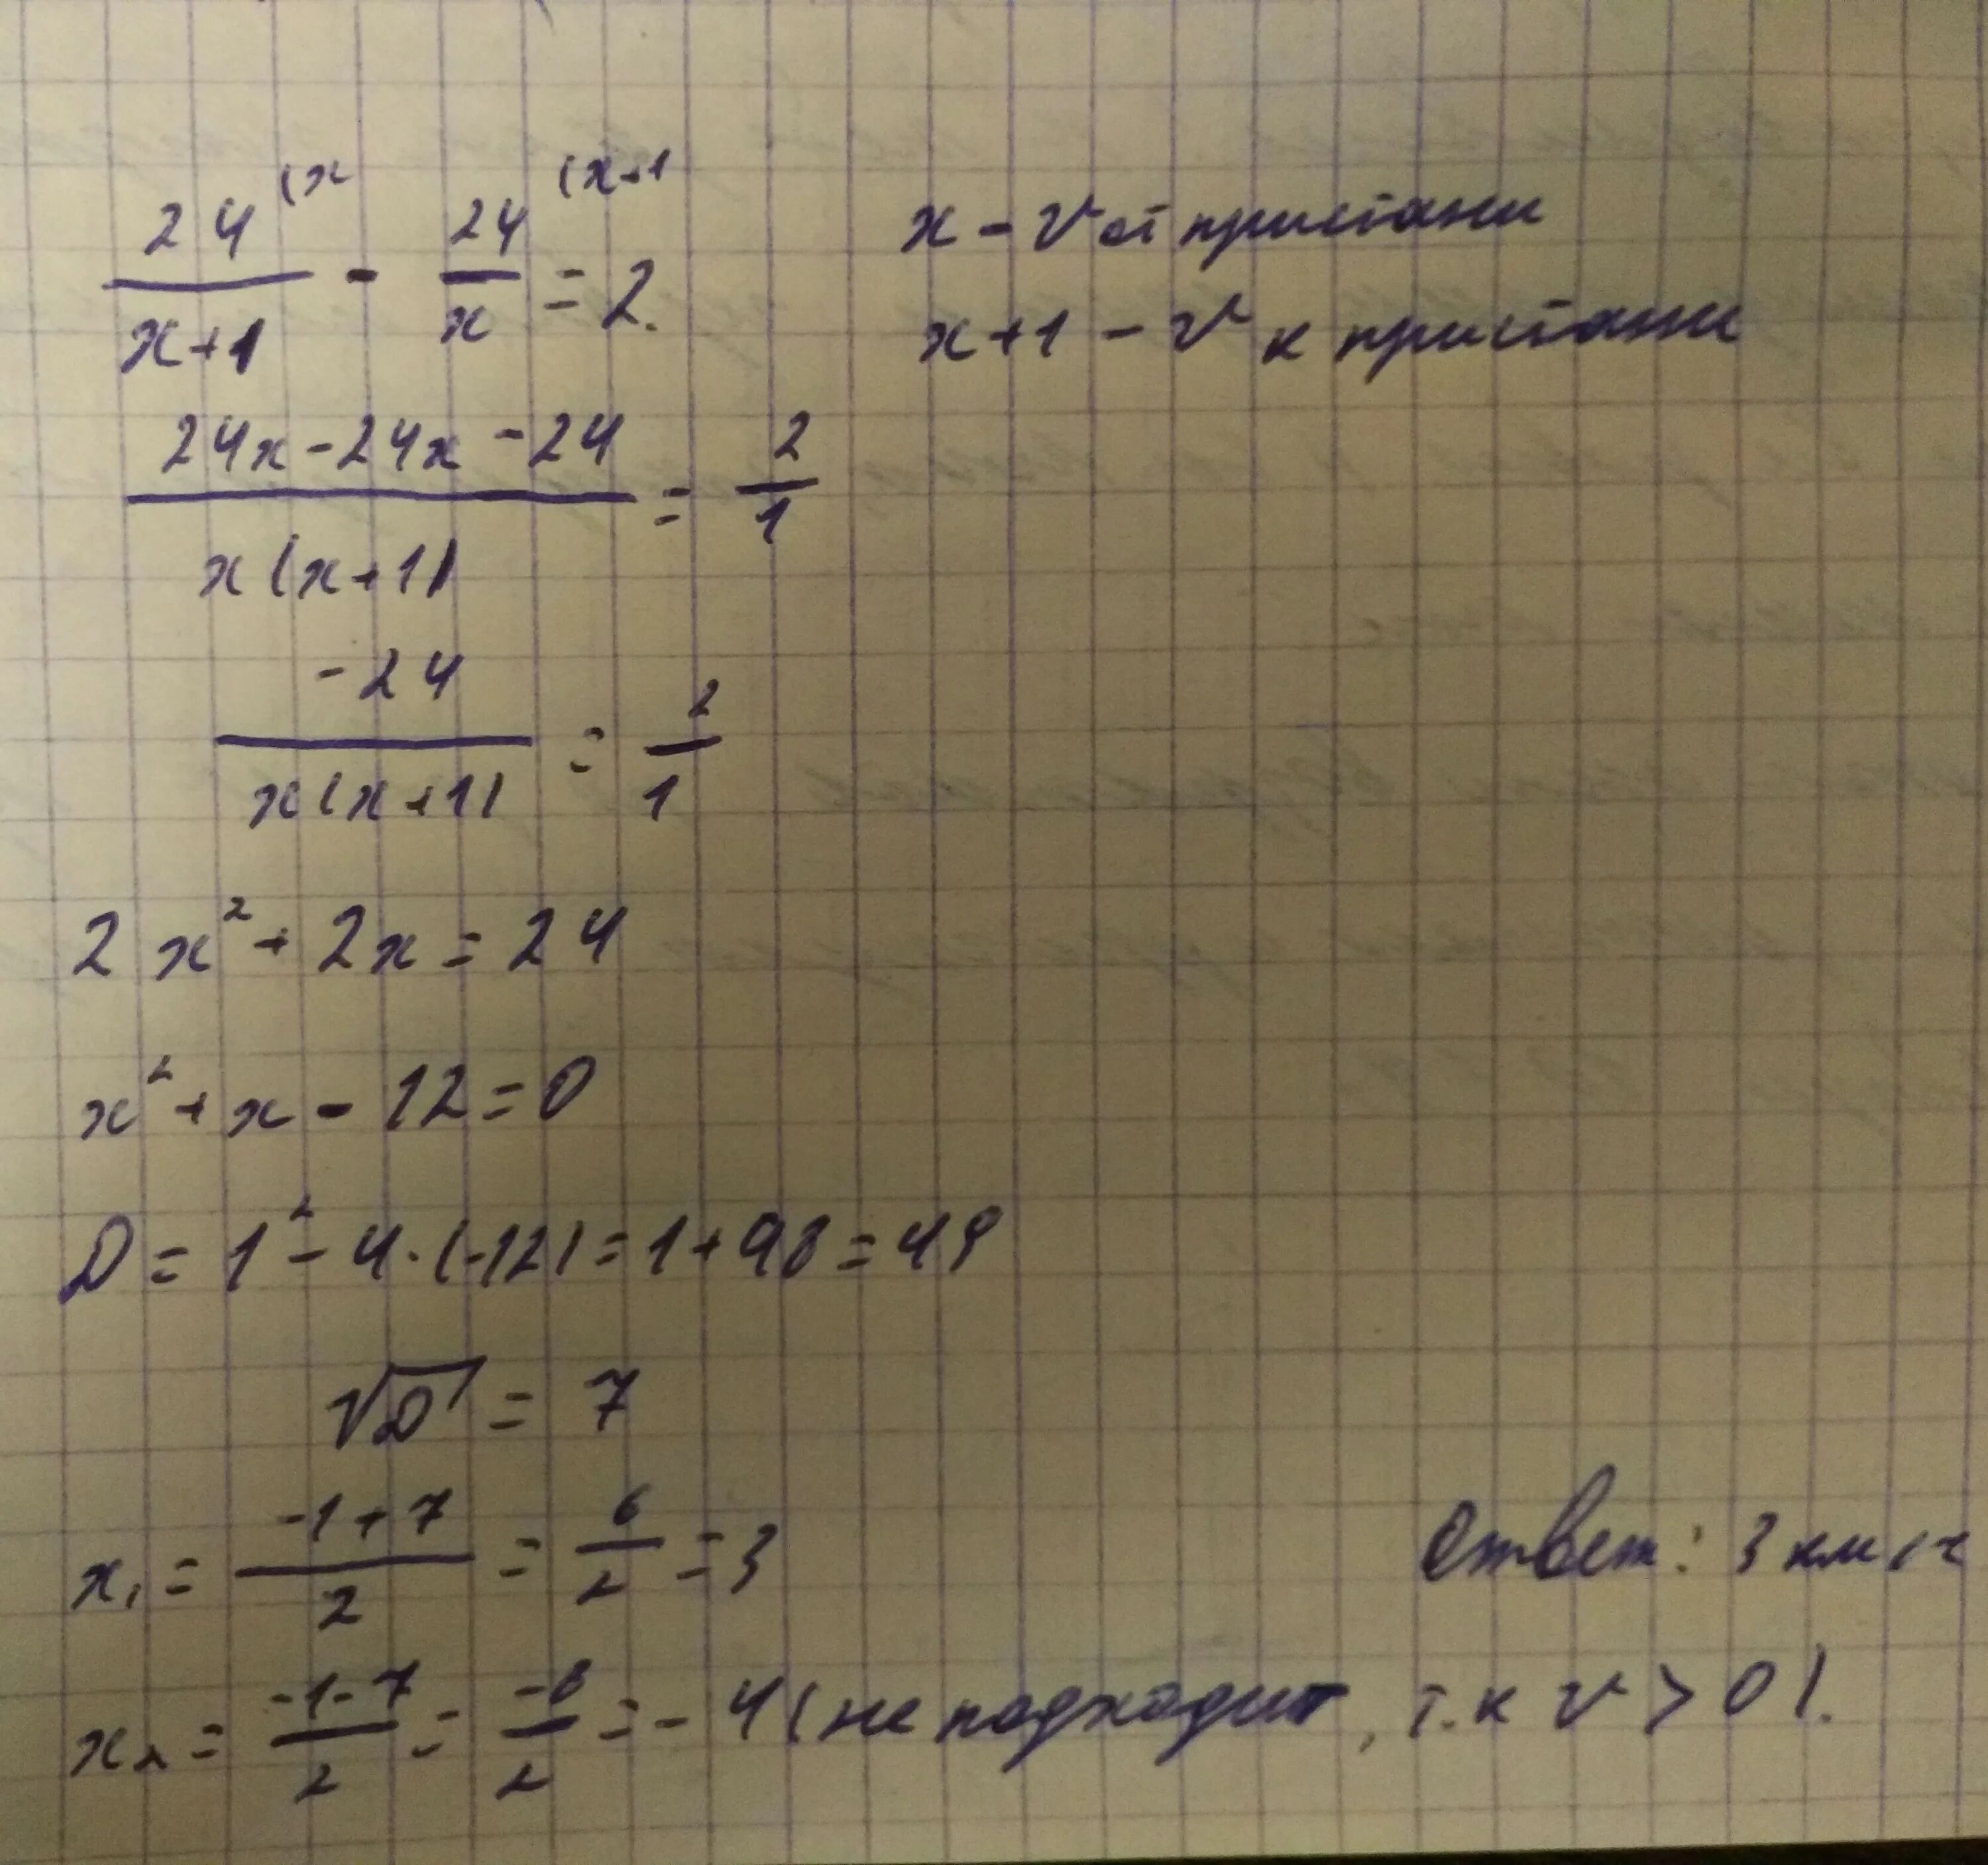 24 (x 24 (x+1
x+1 - x = 2.
x - v от пристани
x+1 - v к пристани
24x - 24x - 24 2
x(x+1) = 1
-24 2
x(x+1) = 1
2x² + 2x = 24
x² + x - 12 = 0
D = 1² - 4·(-12) = 1 + 48 = 49
√D = 7
x₁ = (-1+7)/2 = 6/2 = 3
Ответ: 3 км/ч
x₂ = (-1-7)/2 = -8/2 = -4 (не подходит, т.к v > 0).